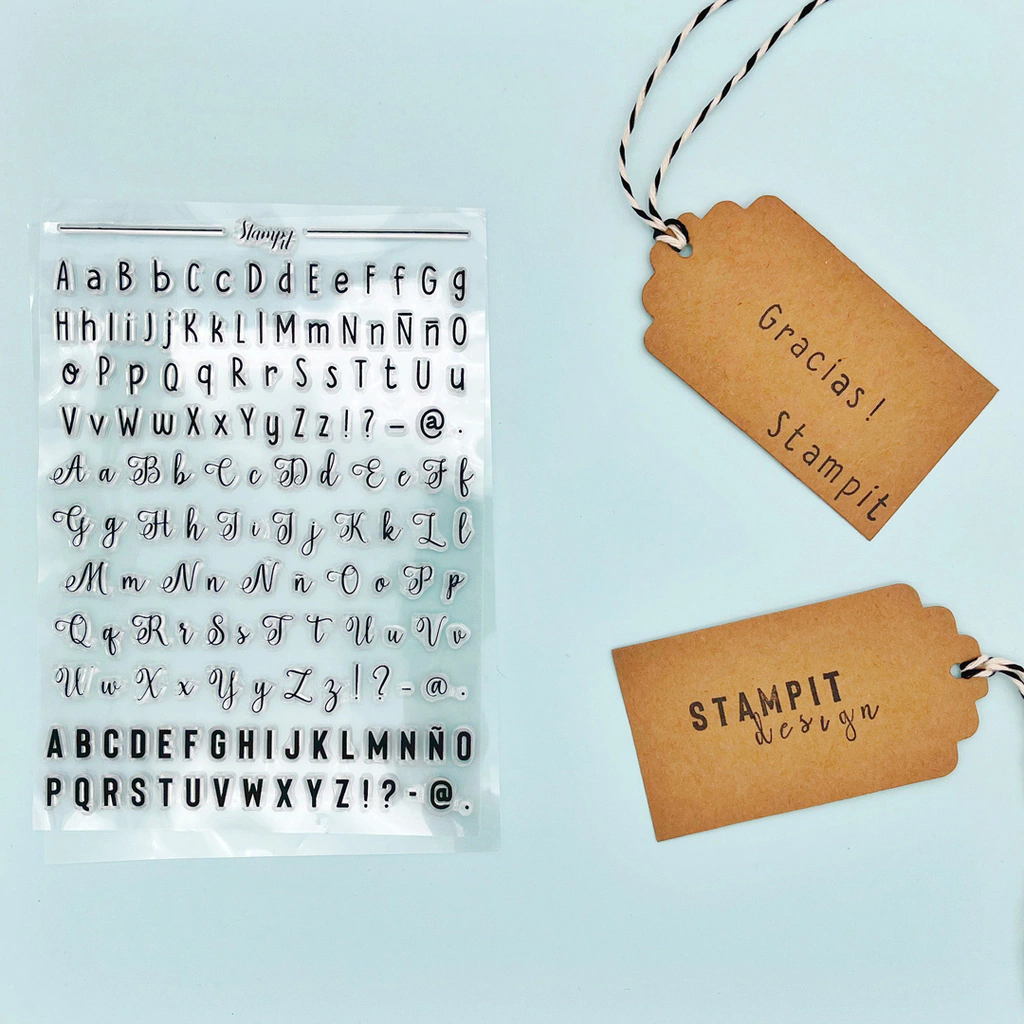 Stampit
A a B b C c D d E e F f G g
H h I i J j K k L l M m N n Ñ ñ O
o P p Q q R r S s T t U u
V v W w X x Y y Z z ! ? - @ .
A a B b C c D d E e F f
G g H h I i J j K k L l
M m N n Ñ ñ O o P p
Q q R r S s T t U u V v
W w X x Y y Z z ! ? - @ .
A B C D E F G H I J K L M N Ñ O
P Q R S T U V W X Y Z ! ? - @ .
Gracias!
Stampit
STAMPIT
design